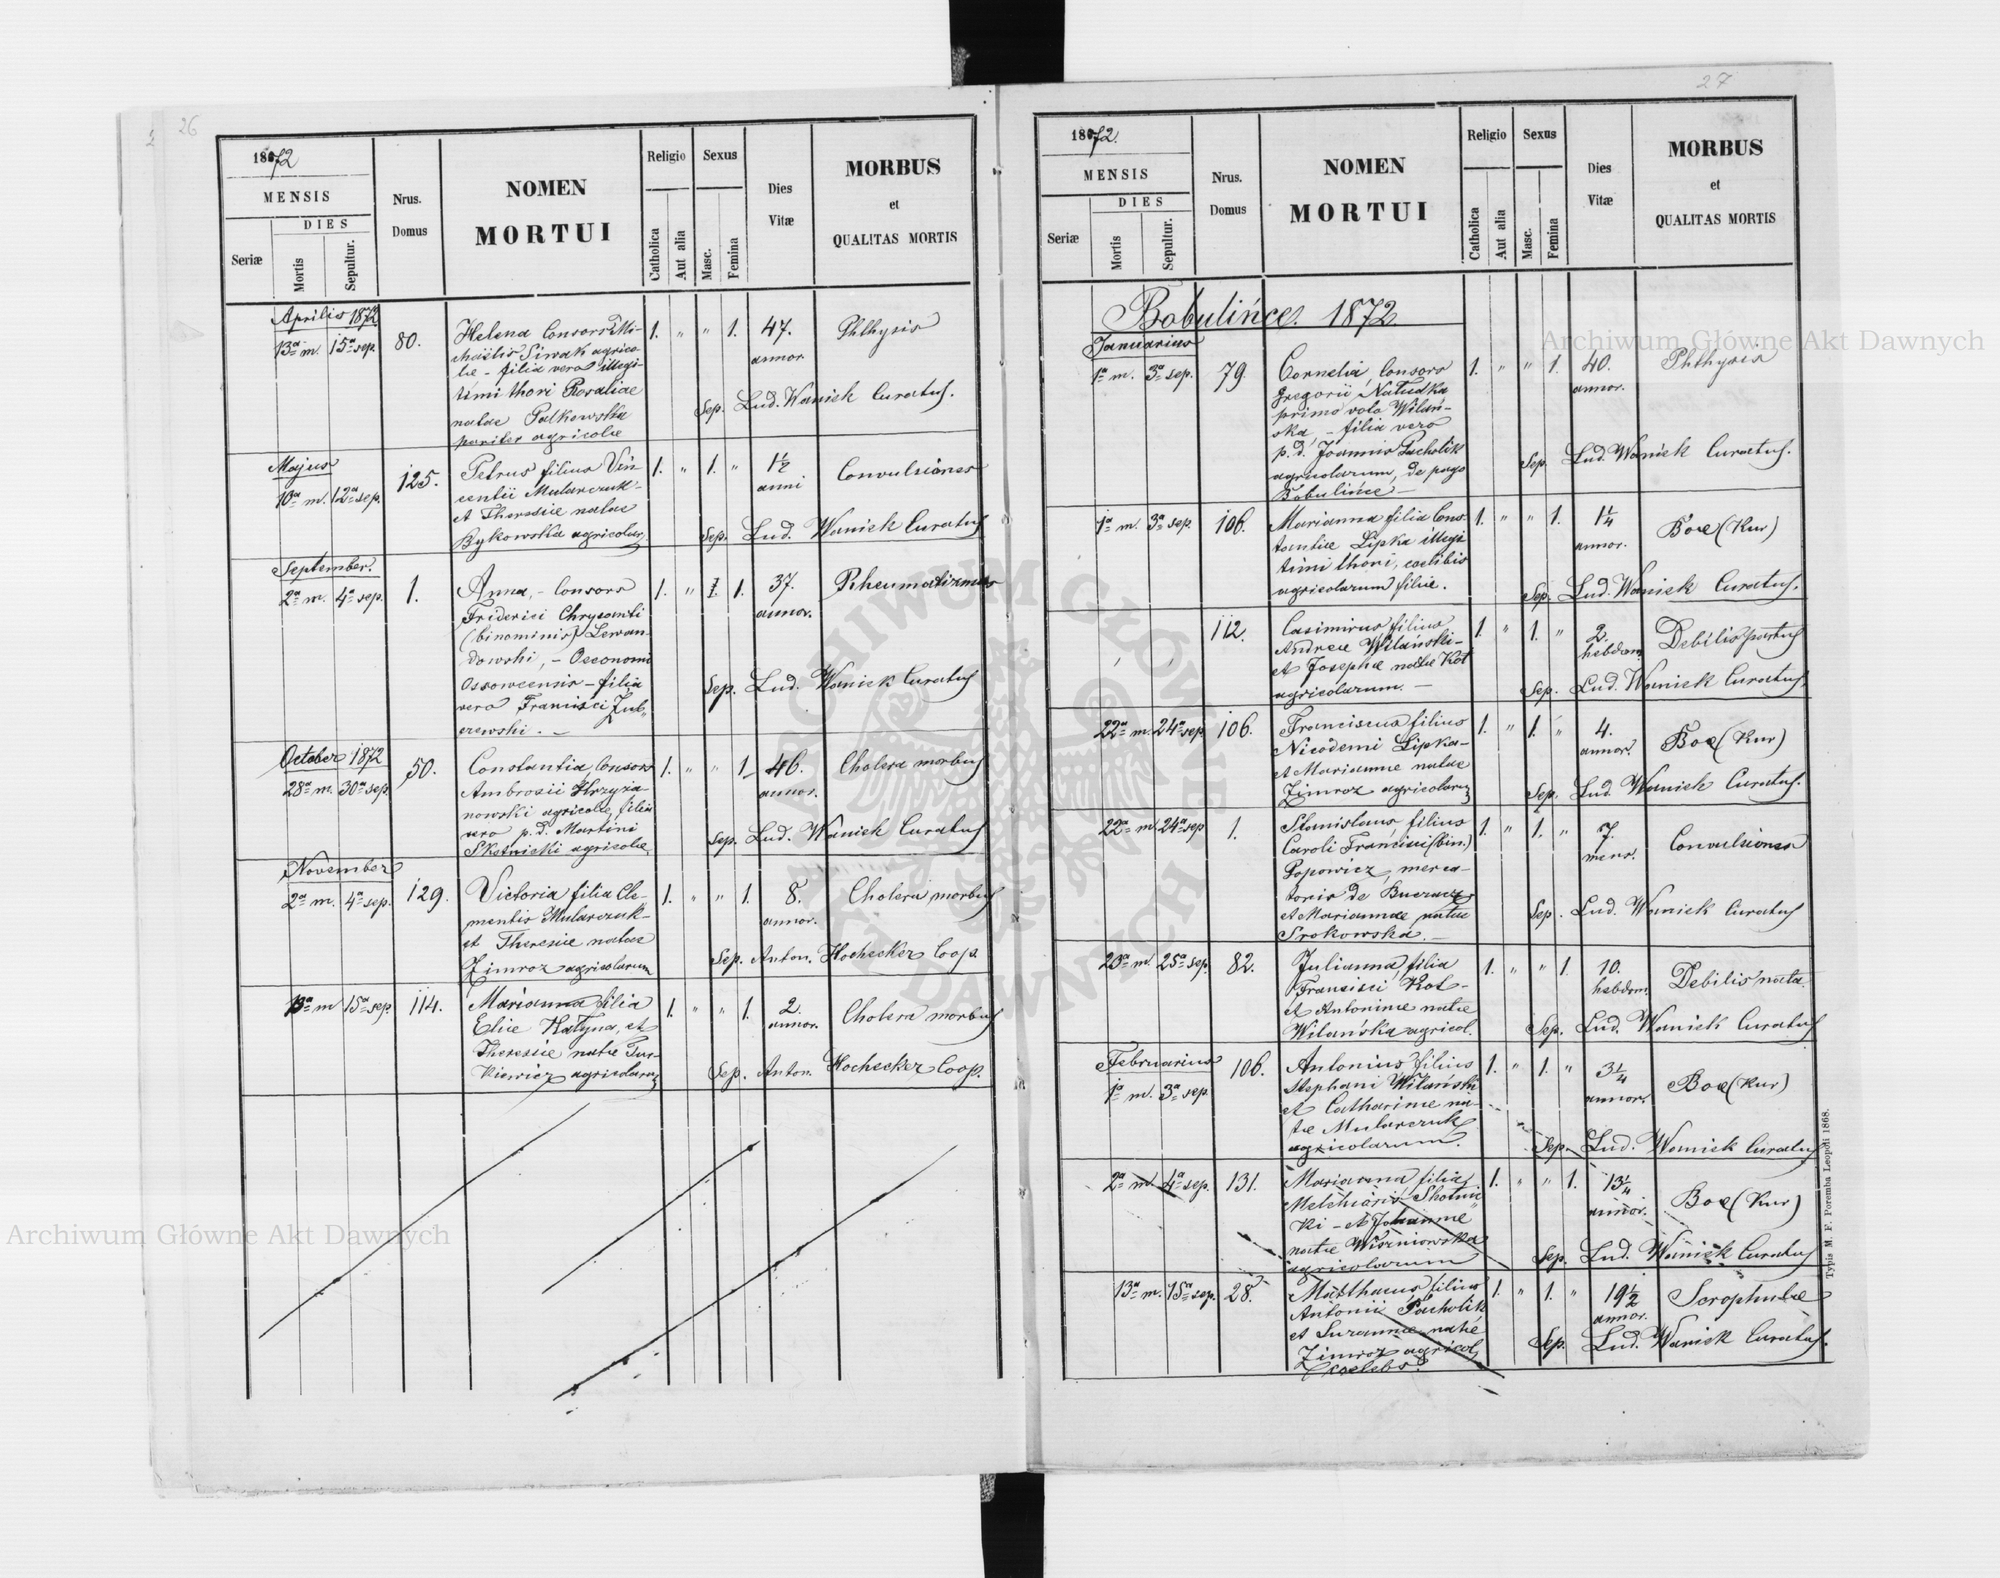 26
1872
MENSIS
DIES
Seriæ
Mortis
Sepultur.
Nrus.
Domus
NOMEN
MORTUI
Religio
Catholica
Aut alia
Sexus
Masc.
Femina
Dies
Vitæ
MORBUS
et
QUALITAS MORTIS
Aprilis 1872
13a m. 15a sep. 80. Helena Consors Mi- 1. " " 1. 47. Phthysis
chaëlis Siwak agrico- annor.
læ - filia vero illegi-
timi thori Rosaliae
natae Palkowska Sep. Lud. Waniek Curatus.
pariter agricolæ
Majus
10a m. 12a sep. 125. Petrus filius Vin 1. " 1. " 1½ Convulsiones
centii Mularczuk - anni
et Theresiæ natae
Bykowska agricolar. Sep. Lud. Waniek Curatus
September.
2a m. 4a sep. 1. Anna, - Consors 1. " 1. 37. Rheumatizmus
Friderici Chrysanti annor.
(binominis) Lewan-
dowski, - Oeconomi
Ossowcensis - filia Sep. Lud. Waniek Curatus
vero Francisci Zub-
rzewski. -
October 1872
28a m. 30a sep. 50. Constantia Consors 1. " " 1. 46. Cholera morbus
Ambrosii Krzyża annor.
nowski agricolæ, filia
vero p. d. Martini Sep. Lud. Waniek Curatus
Skotnicki agricolæ.
November
2a m. 4a sep. 129. Victoria filia Cle- 1. " " 1. 8. Cholera morbus
mentis Mularczuk - annor.
et Theresiæ natae
Zimroz agricolarum Sep. Anton. Hochecker Coop.
13a m 15a sep. 114. Marianna filia 1. " " 1. 2. Cholera morbus
Eliæ Hałyna, et annor.
Theressiæ natæ Tur-
kiewicz agricolarum Sep. Anton. Hochecker Coop.
27
1872.
MENSIS
DIES
Seriæ
Mortis
Sepultur.
Nrus.
Domus
NOMEN
MORTUI
Religio
Catholica
Aut alia
Sexus
Masc.
Femina
Dies
Vitæ
MORBUS
et
QUALITAS MORTIS
Bobulińce. 1872.
Januarius
1a m. 3a sep. 79 Cornelia, Consors 1. " " 1. 40. Phthysis
Gregorii Natudka annor.
primo voto Wilań-
ska - filia vero
p. d. Joannis Pacholik
agricolarum, de pago Sep. Lud. Waniek Curatus.
Bobulińce -
1a m. 3a sep 106. Marianna filia Cons- 1. " " 1. 1¼ Boæ (Kur)
tantiæ Lipka illegi annor.
timi thori, coelibis
agricolarum filiæ. Sep. Lud. Waniek Curatus.
112. Casimirus filius 1. " 1. " 2. Debilis partus
Andreæ Wilański - hebdom.
et Josephæ natæ Kot
agricolarum. - Sep. Lud. Waniek Curatus.
22a m. 24a sep 106. Franciscus filius 1. " 1. " 4. Boæ (Kur)
Nicodemi Lipka - annor.
et Mariannæ natae
Zimroz agricolarum Sep. Lud. Waniek Curatus.
22a m. 24a sep 1. Stanislaus filius 1. " 1. " 7. Convulsiones
Caroli Francisci (bin.) mens.
Popowicz, merca-
toris de Buczacz
et Mariannae natæ Sep. Lud. Waniek Curatus
Srokowska. -
20a m. 25a sep. 82. Julianna, filia 1. " " 1. 10. Debilis nata
Francisci Kot - hebdom.
et Antoninæ natæ
Wilańska agricol. Sep. Lud. Waniek Curatus
Februarius
1a m. 3a sep. 106. Antonius filius 1. " 1. " 3¼ Boæ (Kur)
Stephani Wilański annor.
et Catharinæ na-
tæ Mularczuk
agricolarum. Sep. Lud. Waniek Curatus
2a m. 4a sep. 131. Marianna filia 1. " " 1. 13¼ Boæ (Kur)
Melchioris Skotnic annor.
ki - et Johannæ
natæ Wiszniowska
agricolarum Sep. Lud. Waniek Curatus
13a m. 15a sep. 28. Matthaeus filius 1. " 1. " 19½ Scrophulæ
Antonii Pacholik annor.
et Suzannæ natæ Sep. Lud. Waniek Curatus.
Zimroz agricol.
Coelebs.
Typis M. F. Poremba Leopoli 1868.
Archiwum Główne Akt Dawnych
Archiwum Główne Akt Dawnych
ARCHIWUM GŁÓWNE AKT DAWNYCH